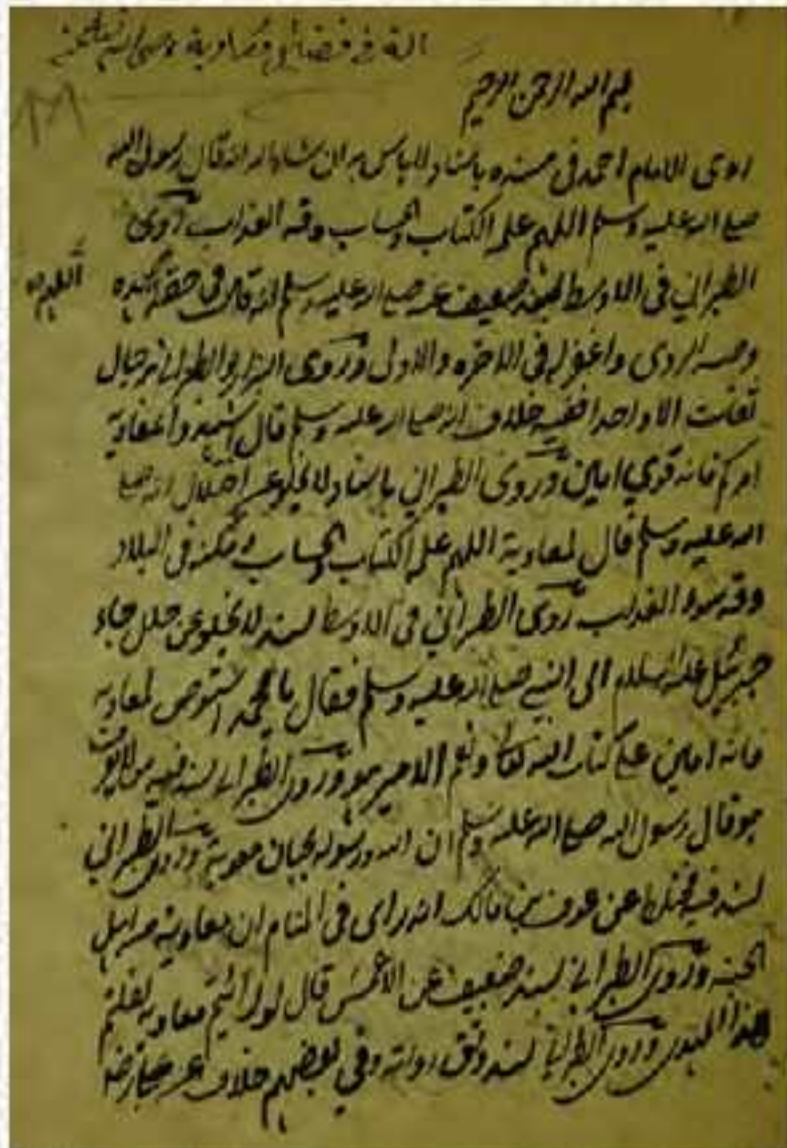 رسالة في فضائل معاوية رضي الله تعالى عنه
بسم الله الرحمن الرحيم
روى الامام احمد في مسنده باسناد لا باس به ان شاء الله انه قال رسول الله
صلى الله عليه وسلم اللهم علمه الكتاب والحساب وقه العذاب وروى
الطبراني في الاوسط بسند ضعيف عنه صلى الله عليه وسلم انه قال في حقه اهده
اللهم
وجنبه الردى واغفر له في الاخره والاولى وروى البزار والطبراني برجال
ثقات الا واحدا ففيه خلاف انه صلى الله عليه وسلم قال اشهدوا معاوية
امركم فانه قوي امين وروى الطبراني باسناد لا يخلو عن اختلال انه صلى
الله عليه وسلم قال لمعاوية اللهم علمه الكتاب والحساب ومكنه في البلاد
وقه سوء العذاب وروى الطبراني في الاوسط بسند لا يخلو عن خلل جاء
جبرئيل عليه السلام الى النبي صلى الله عليه وسلم فقال يا محمد استوص لمعاوية
فانه امين على كتاب الله تعالى ونعم الامين هو وروى الطبراني بسند فيه من لا يعرف
هو قال رسول الله صلى الله عليه وسلم ان الله ورسوله يحبان معوية وروى الطبراني
بسند فيه مختلط عن عوف بن مالك انه راى في المنام ان معاوية من اهل
الجنه وروى الطبراني بسند ضعيف عن الاعمش قال لو رايتم معاوية لقلتم
هذا المهدى وروى الطبراني بسند وثق رواته وفي بعضهم خلاف عن